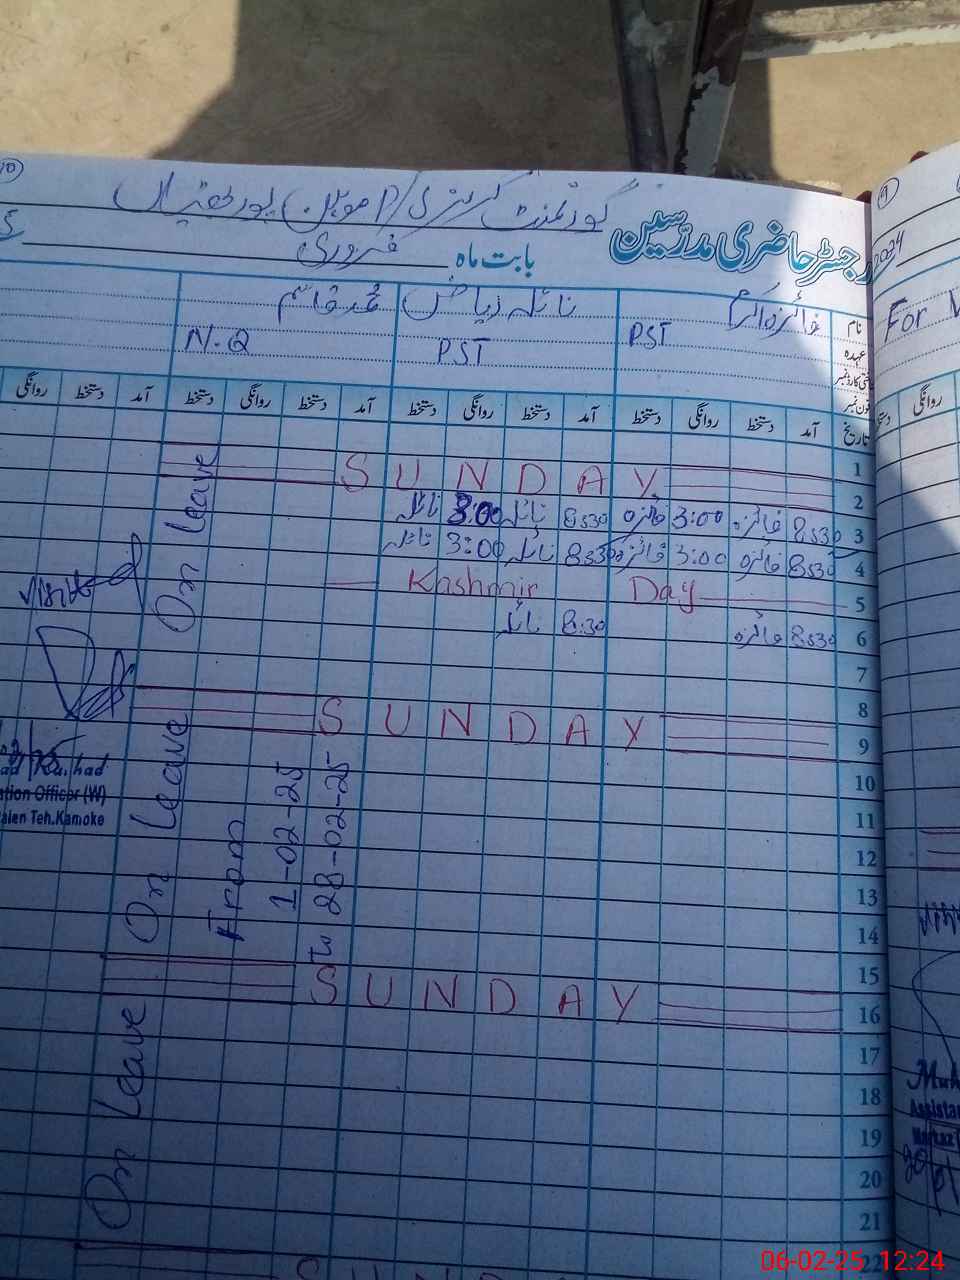 رجسٹر حاضری مدرسین گورنمنٹ
بابت ماہ فروری
نام فائزہ اکرم نائلہ ریاض محمد قاسم
عہدہ PST PST N.Q
تاریخ آمد دستخط روانگی دستخط آمد دستخط روانگی دستخط آمد دستخط روانگی دستخط آمد دستخط روانگی
1
2 SUNDAY
3 8:30 فائزہ 3:00 فائزہ 8:30 نائلہ 3:00 نائلہ
4 8:30 فائزہ 3:00 فائزہ 8:30 نائلہ 3:00 نائلہ
5 Kashmir Day
6 8:30 فائزہ 8:30 نائلہ
7
8
9 SUNDAY
10
11
12
13
14
15
16 SUNDAY
17
18
19
20
21
22
On leave
On leave
From
1-02-25
to 28-02-25
On leave
Visited
ation Officer (W)
Teh.Kamoke
10
9
2024
For
روانگی
Muh
Assista
06-02-25 12:24